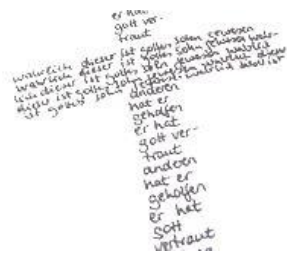 er hat
gott ver-
traut
wahrlich dieser ist gottes sohn gewesen
wahrlich dieser ist gottes sohn gewesen wahr-
lich dieser ist gottes sohn gewesen wahrlich
dieser ist gottes sohn gewesen wahrlich dieser
ist gottes sohn gewesen wahrlich dieser ist
anderen
hat er
geholfen
er hat
gott ver-
traut
anderen
hat er
geholfen
er hat
Gott
vertraut